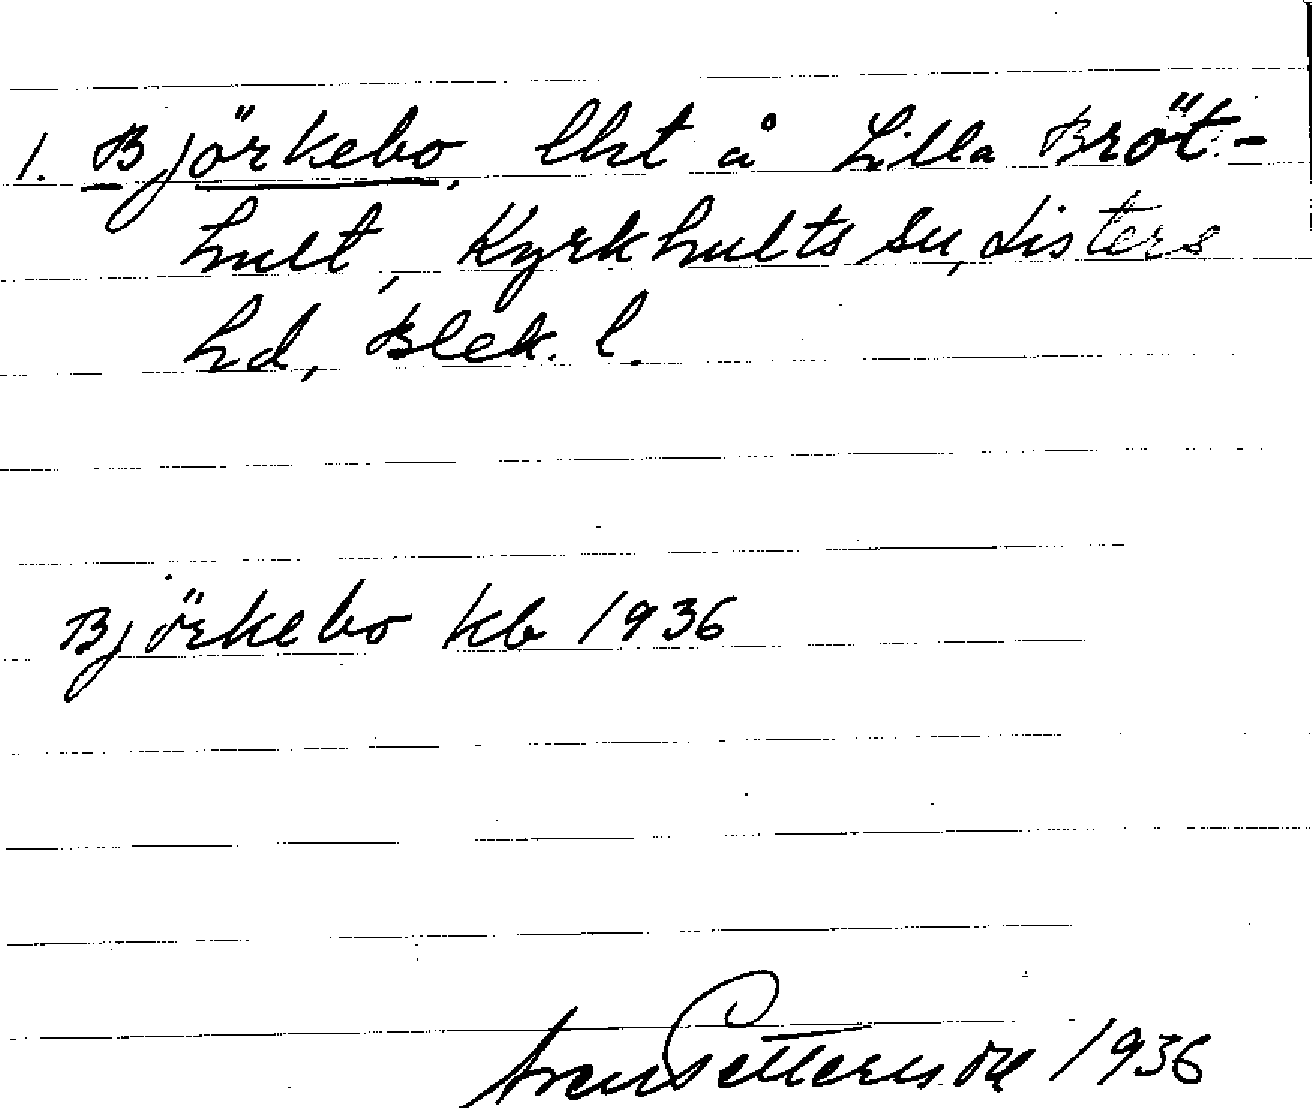 1. Björkebo, lht å Lilla Bröt-
hult, Kyrkhults sn, Listers
hd, Blek. l.
Björkebo kb 1936
Sven Petterson 1936